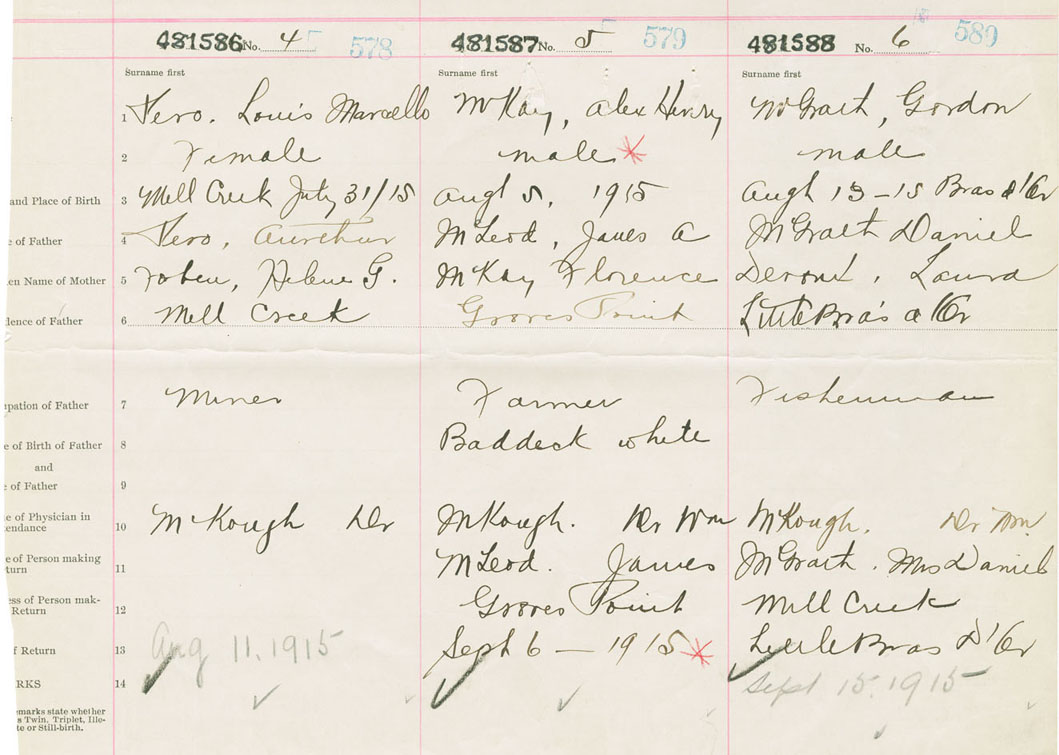 481586 No. 4 578 481587 No. 5 579 481588 No. 6 589
Surname first Surname first Surname first
1 Fero. Louis Marcello McKay, Alex Henry McGrath, Gordon
2 Female male male
and Place of Birth 3 Mill Creek July 31/15 Augt 5, 1915 Augt 13-15 Bras d'Or
e of Father 4 Fero, McLeod, James A McGrath Daniel
en Name of Mother 5 Helene G. McKay Florence Laura
dence of Father 6 Mill Creek Groves Point Little Bras d'Or
upation of Father 7 Miner Farmer Fisherman
e of Birth of Father 8 Baddeck white
and
e of Father 9
e of Physician in
tendance 10 McKough Dr McKough. Dr Wm McKough. Dr Wm.
e of Person making
turn 11 McLeod. James McGrath. Mrs Daniel
ess of Person mak-
Return 12 Groves Point Mill Creek
f Return 13 Aug 11, 1915 Sept 6 - 1915 Little Bras D'Or
RKS 14 Sept 15, 1915
emarks state whether
s Twin, Triplet, Ille-
te or Still-birth.